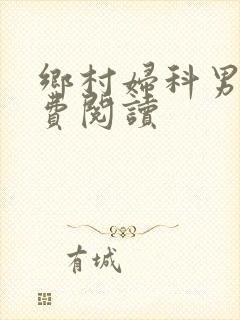 鄉村婦科男
費閱讀
有城